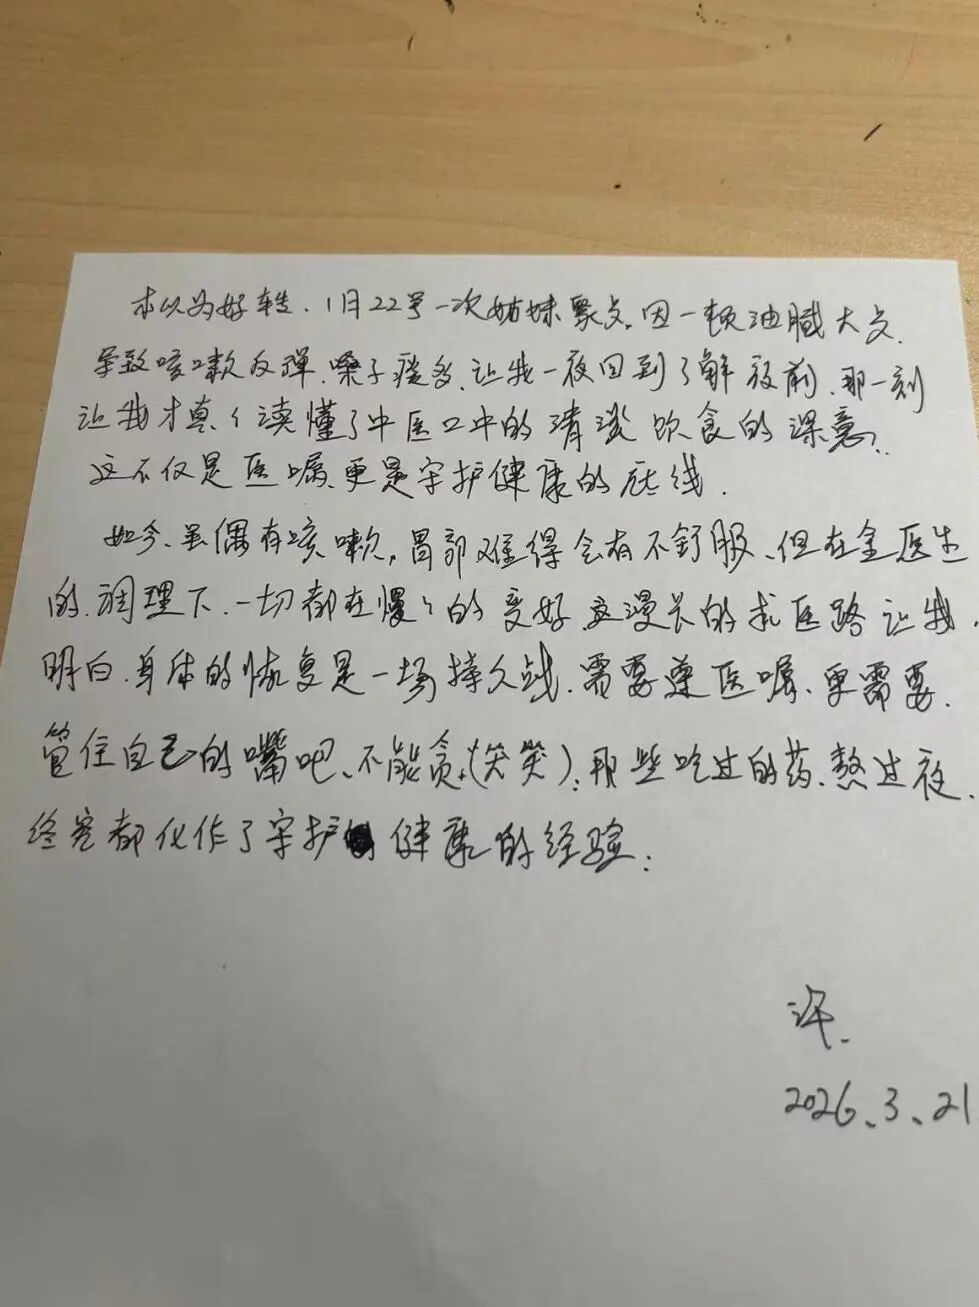 本以为好转、1月22号一次姊妹聚餐,因一顿油腻大餐、
导致咳嗽反弹、嗓子痰多、让我一夜回到了解放前、那一刻
让我才真々读懂了中医口中的清淡饮食的深意,
这不仅是医嘱、更是守护健康的底线.
如今、虽偶有咳嗽,胃部难得会有不舒服、但在金医生
的、调理下、一切都在慢々的变好、这漫长的求医路让我、
明白、身体的恢复是一场持久战、需要遵医嘱、更需要、
管住自己的嘴吧、不能贪,(笑笑)、那些吃过的药、熬过夜、
终究都化作了守护健康的经验;
许、
2026、3、21